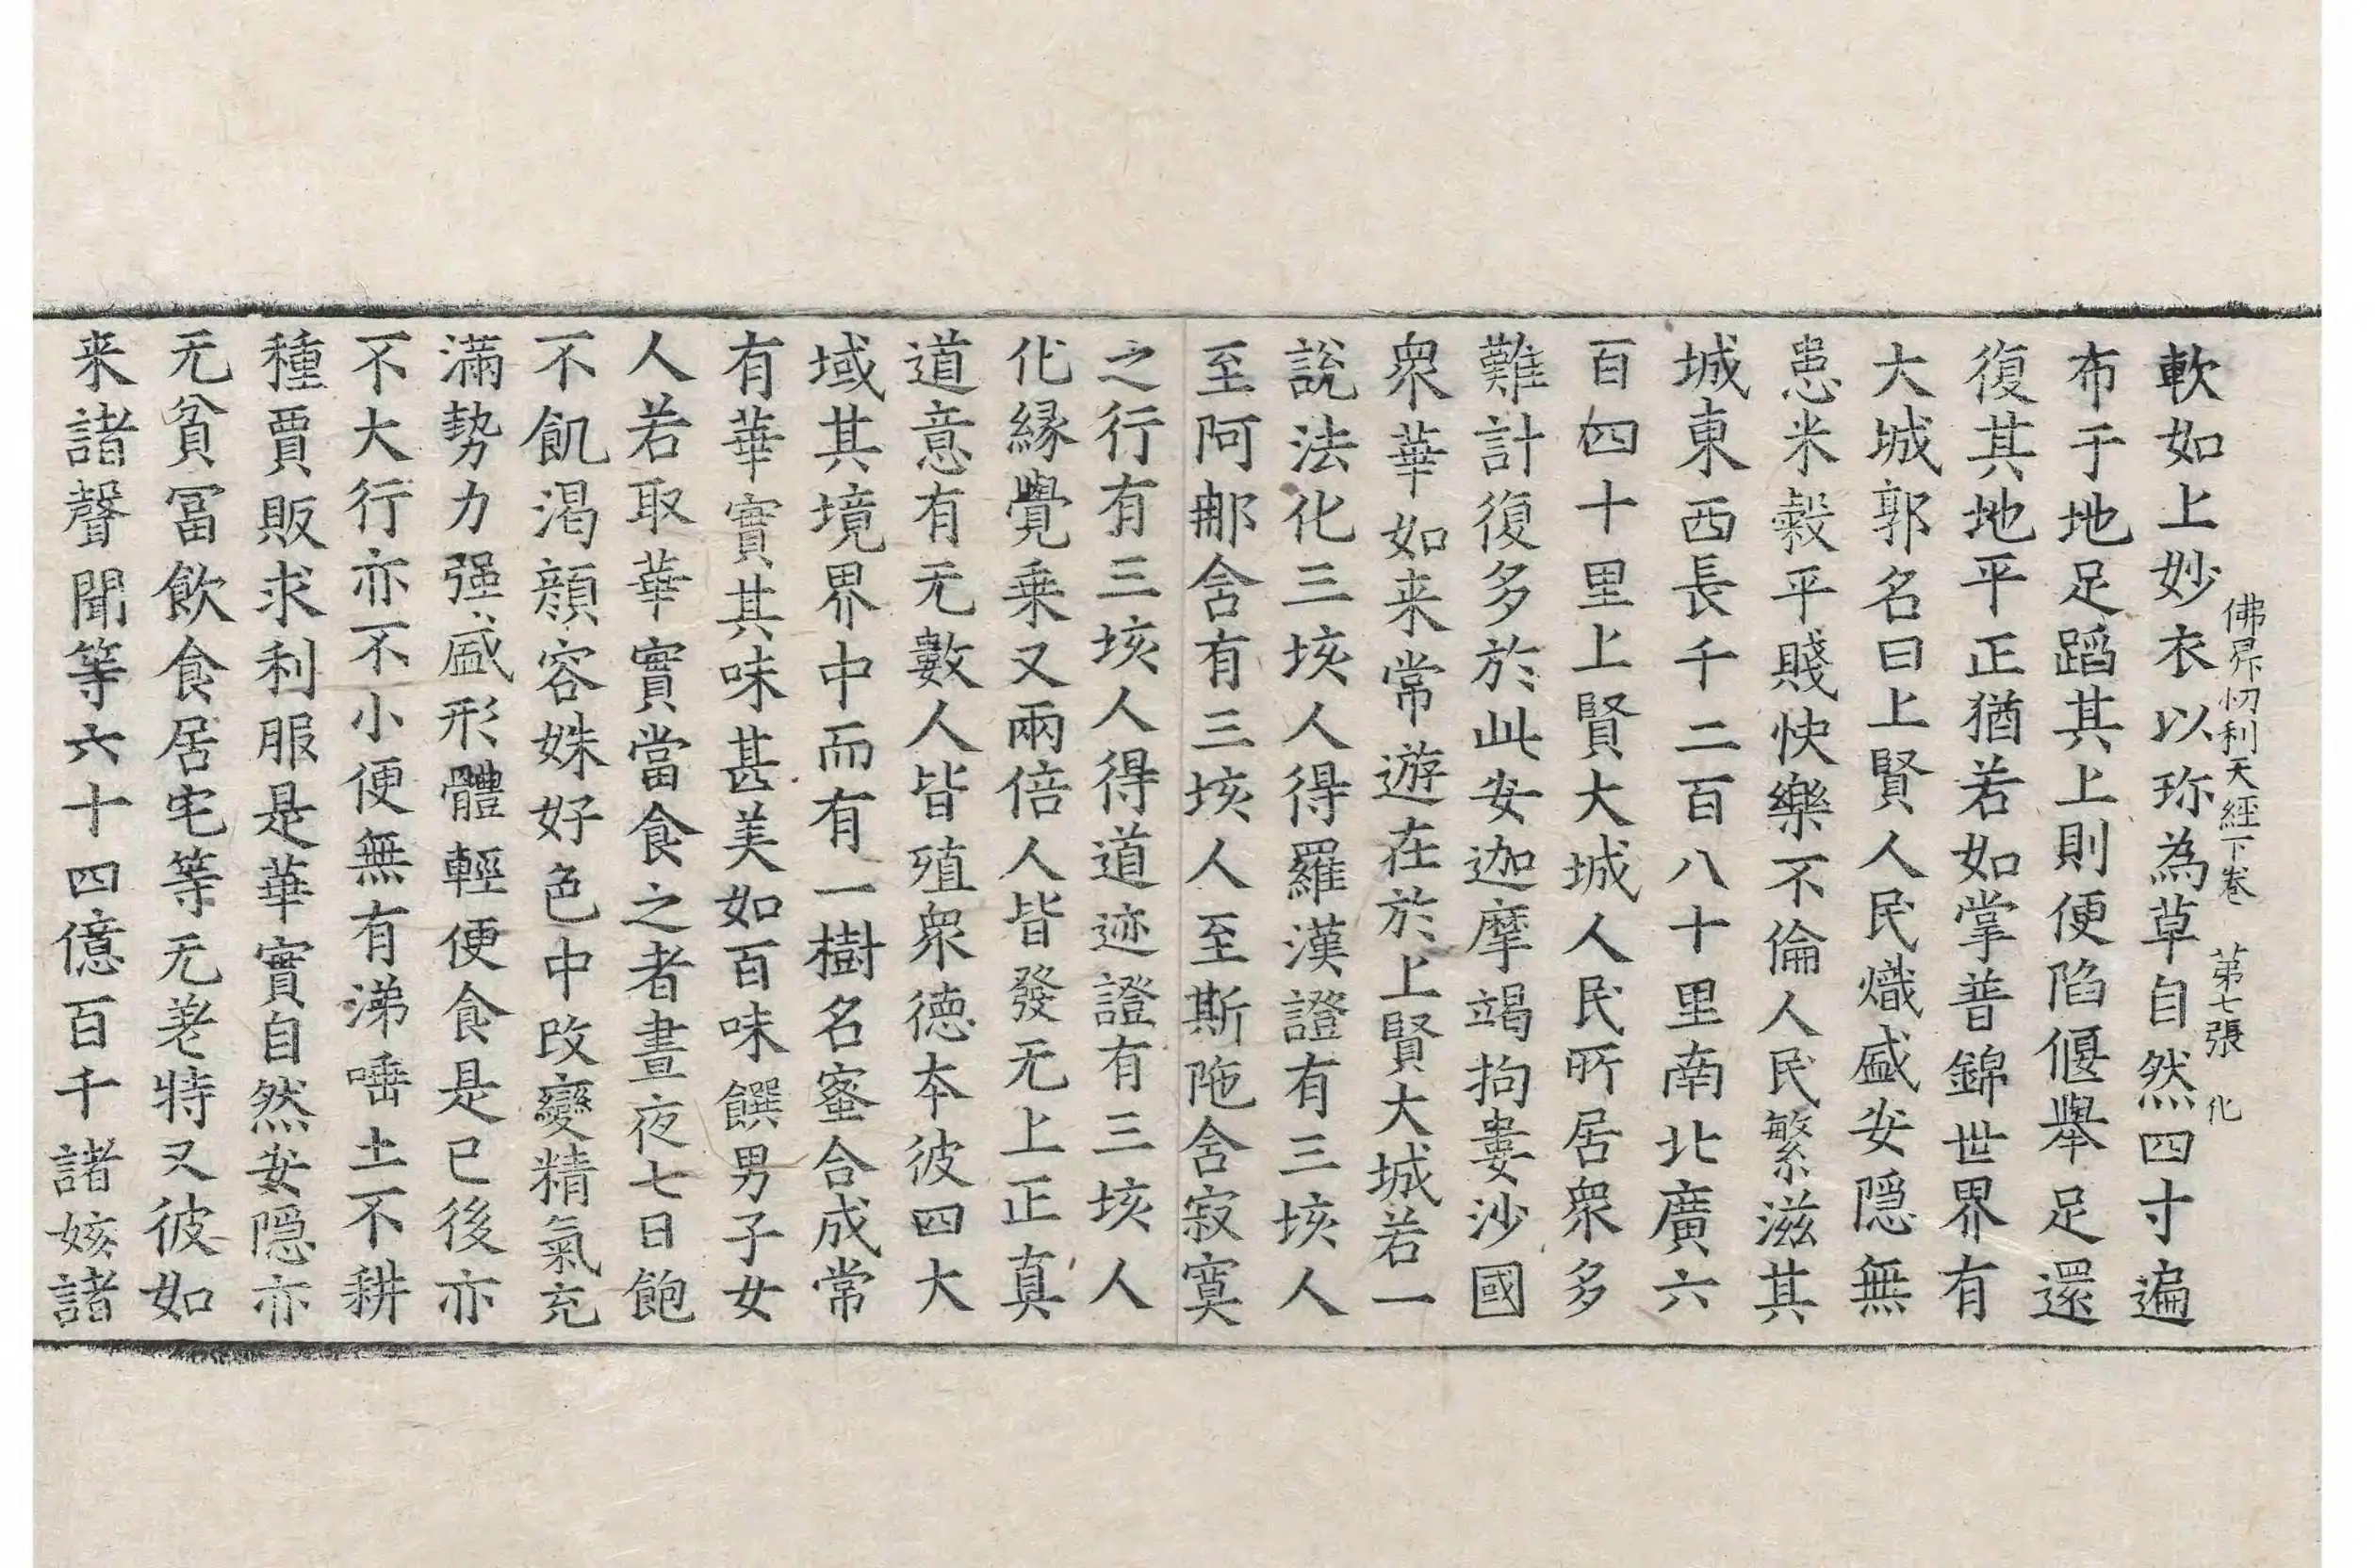 佛昇忉利天經下卷　第七張　化
軟如上妙衣以珎為草自然四寸遍
布于地足蹈其上則便陷偃舉足還
復其地平正猶若如掌普錦世界有
大城郭名曰上賢人民熾盛安隠無
患米糓平賤快樂不倫人民繁滋其
城東西長千二百八十里南北廣六
百四十里上賢大城人民所居衆多
難計復多於此安迦摩竭拘婁沙國
衆華如来常遊在於上賢大城若一
說法化三垓人得羅漢證有三垓人
至阿那舍有三垓人至斯陁舍寂寞
之行有三垓人得道迹證有三垓人
化縁覺乗又兩倍人皆發无上正真
道意有无數人皆殖衆徳夲彼四大
域其境界中而有一樹名蜜合成常
有華實其味甚美如百味饌男子女
人若取華實當食之者晝夜七日飽
不飢渴顔容姝好色中改變精氣充
滿勢力强盛形體輕便食是已後亦
不大行亦不小便無有涕唾土不耕
種賈販求利服是華實自然安隠亦
无貧冨飲食居宅等无差特又彼如
来諸聲聞等六十四億百千諸姟諸